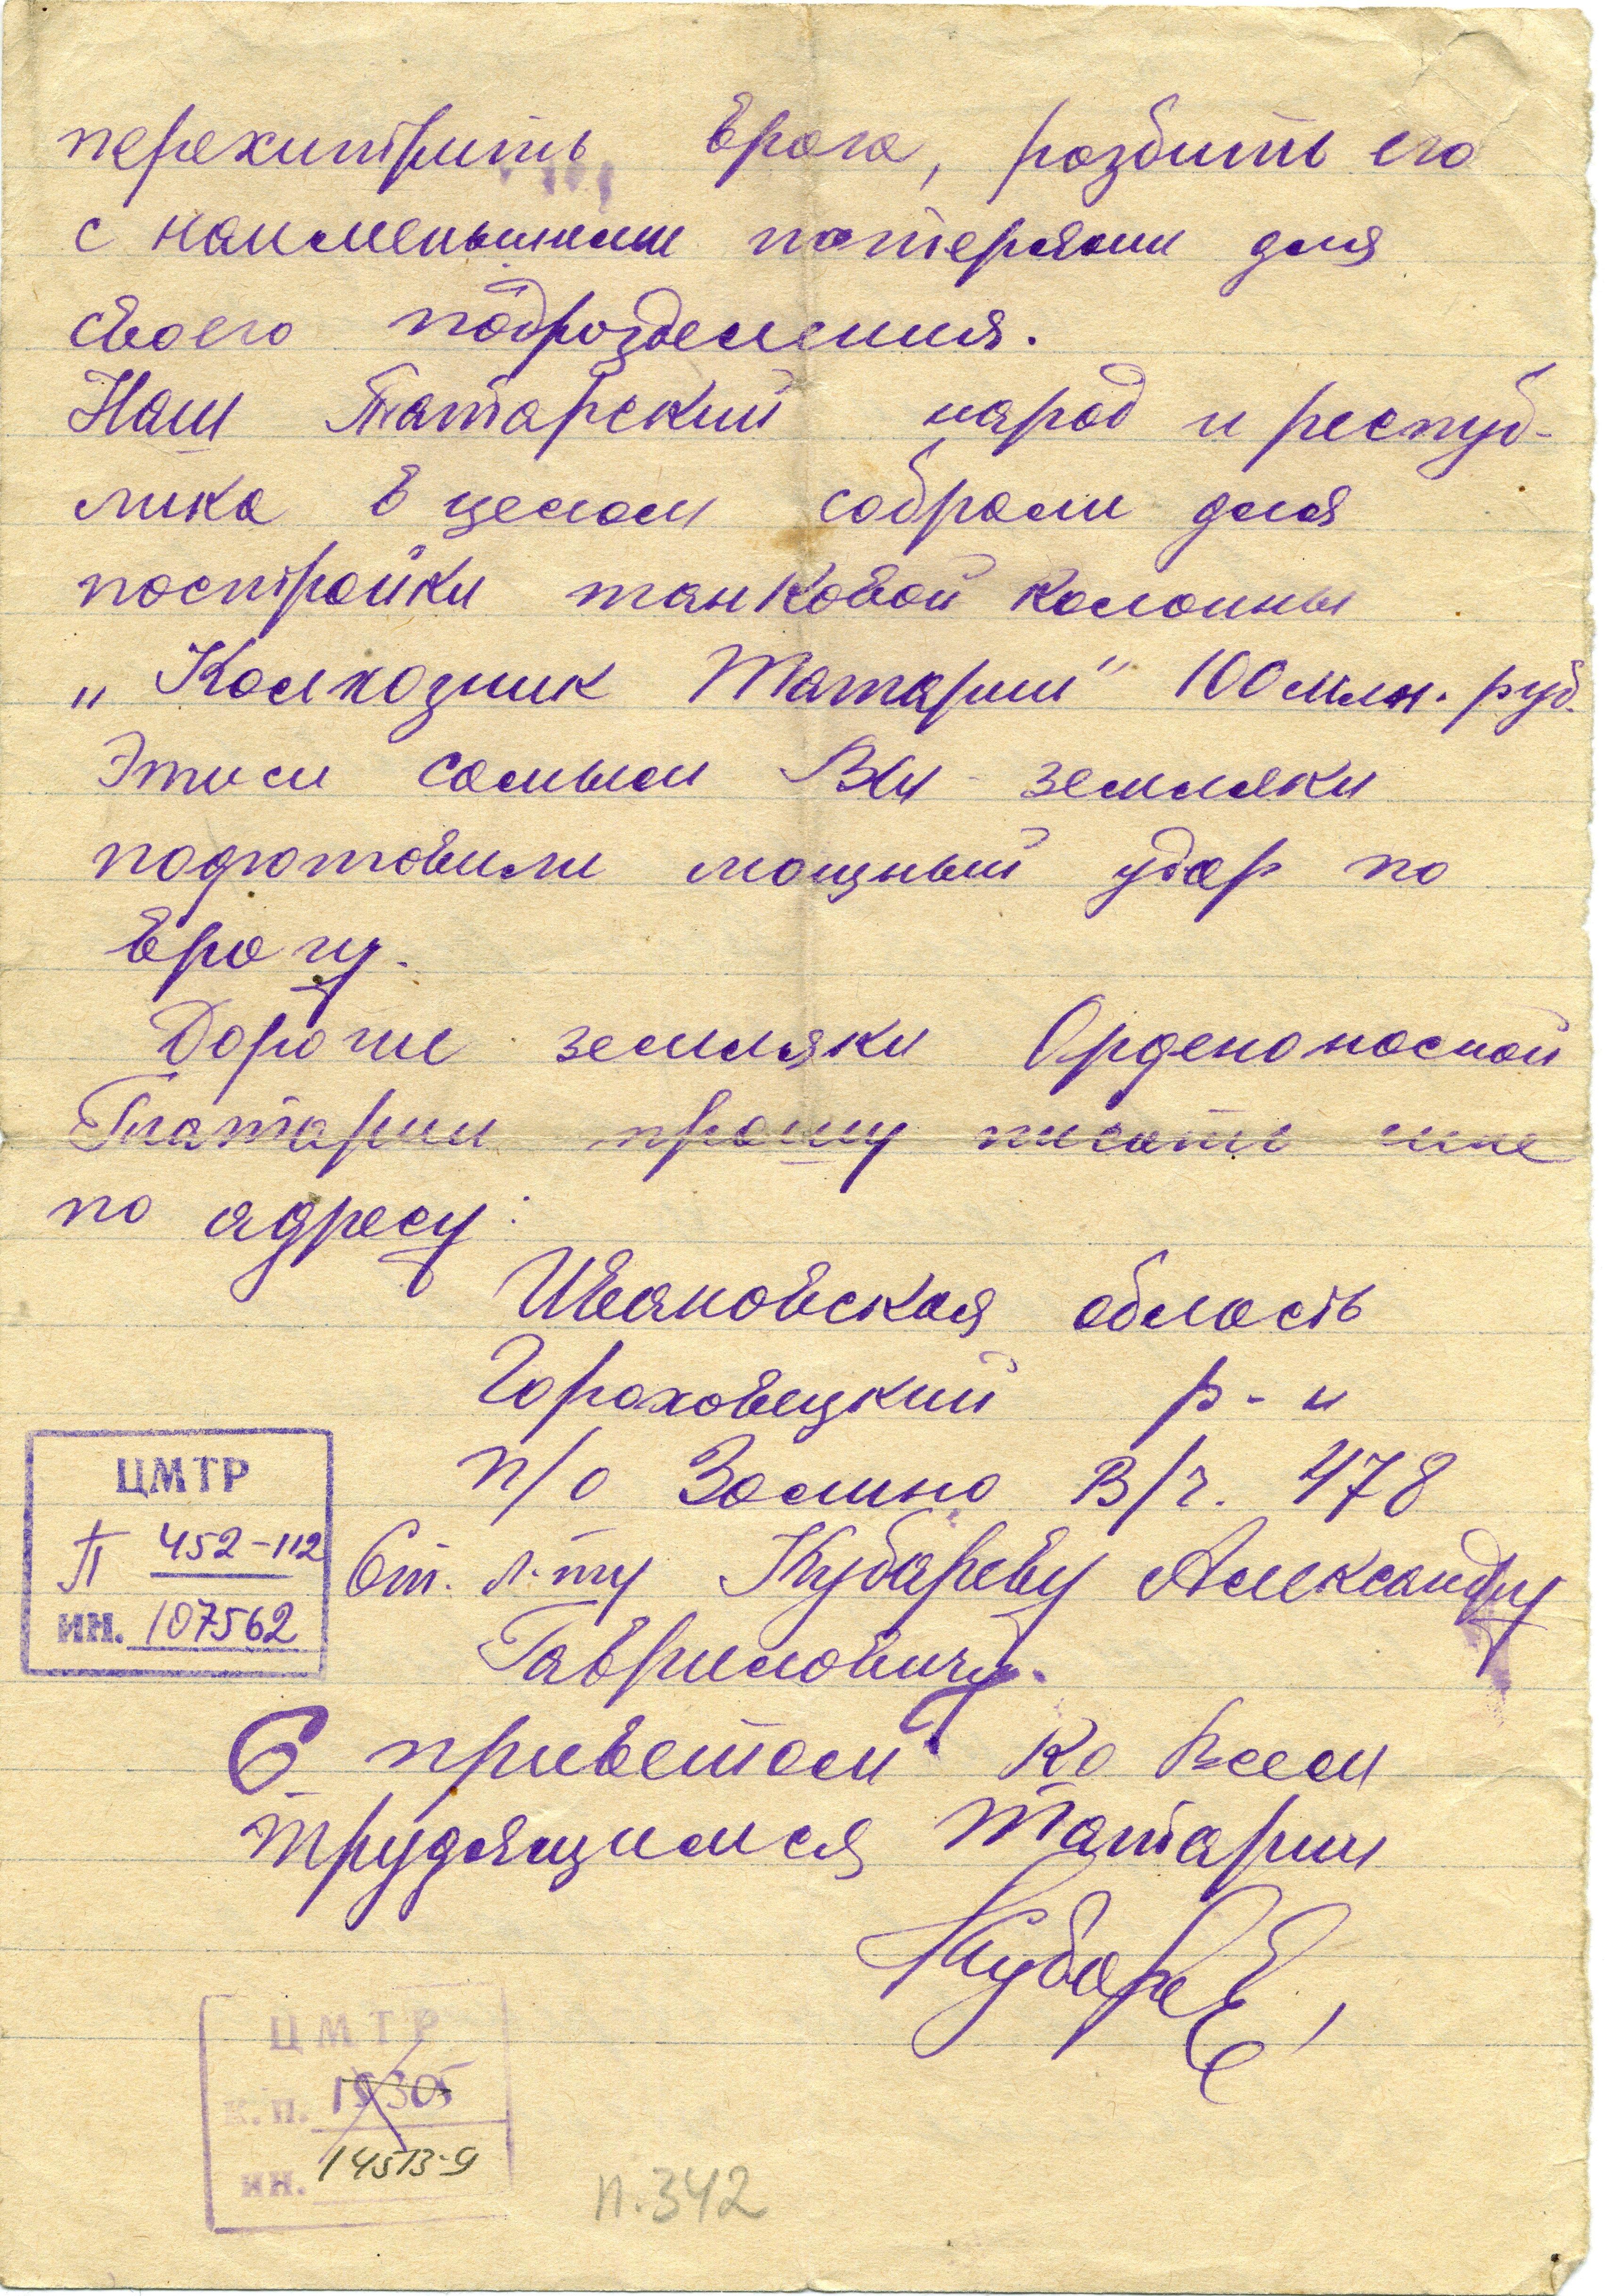 перехитрить врага, разбить его
с наименьшими потерями для
своего подразделения.
Наш Татарский народ и респуб-
лика в целом собрали для
постройки танковой колонны
„Колхозник Татарии" 100 млн. руб.
Этим самым Вы - земляки
подготовили мощный удар по
врагу.
Дорогие земляки Орденоносной
Татарии прошу писать мне
по адресу:
Ивановская область
Гороховецкий р-н
п/о Золино В/ч. 478
Ст. л-ту Кубареву Александру
Гавриловичу.
С приветом ко всем
трудящимся Татарии
Кубарев
ЦМТР
П 452-112
ин. 107562
ЦМТР
к.п. 19305
ин. 14513-9
п. 342